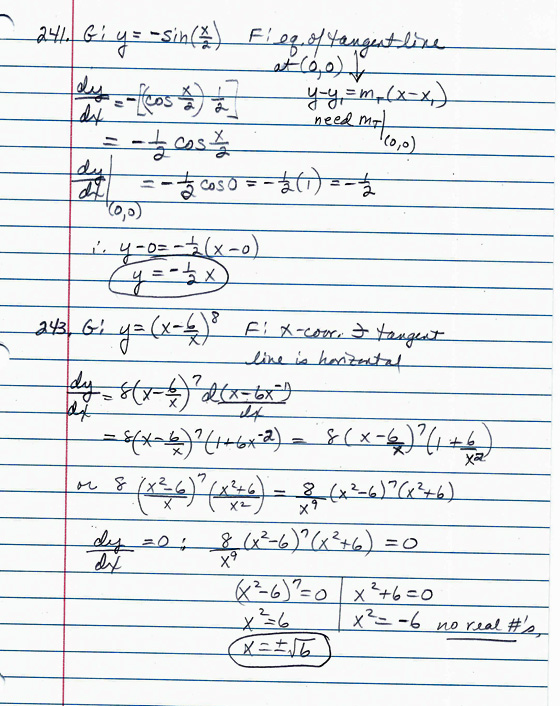 241. G: y = -sin(x/2) F: eq. of tangent line
at (0,0) ↓
dy/dx = -[(cos x/2) 1/2] y-y₁ = m_T (x-x₁)
need m_T|(0,0)
= -1/2 cos x/2
dy/dx|(0,0) = -1/2 cos 0 = -1/2 (1) = -1/2
∴ y-0 = -1/2 (x-0)
y = -1/2 x
243. G: y = (x-6/x)⁸ F: x-coor. ∋ tangent
line is horizontal
dy/dx = 8(x-6/x)⁷ d(x-6x⁻¹)/dx
= 8(x-6/x)⁷(1+6x⁻²) = 8(x-6/x)⁷(1+6/x²)
or 8 ((x²-6)/x)⁷ ((x²+6)/x²) = 8/x⁹ (x²-6)⁷(x²+6)
dy/dx = 0 : 8/x⁹ (x²-6)⁷(x²+6) = 0
(x²-6)⁷=0 | x²+6=0
x²=6 | x²=-6 no real #'s,
x=±√6